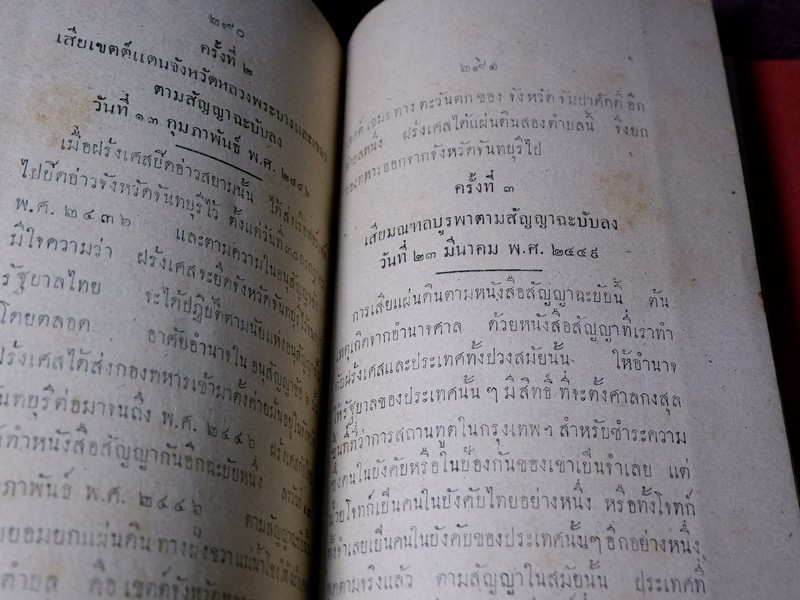 ๒๙๐
ครั้งที่ ๒
เสียเขตต์แดนจังหวัดหลวงพระบางและ
ตามสัญญาฉะบับลง
วันที่ ๑๓ กุมภาพันธ์ พ.ศ. ๒๔๔๖
เมื่อฝรั่งเศสยึดอ่าวสยามนั้น ได้ส่ง
ไปยึดอ่าวจังหวัดจันทบุรีไว้ ตั้งแต่วันที่
พ.ศ. ๒๔๓๖ และตามความในอนุสัญญา
มีใจความว่า ฝรั่งเศสจะยึดจังหวัดจันทบุรีไว้
รัฐบาลไทย จะได้ปฏิบัติตามนัยแห่งอนุสัญญา
โดยตลอด อาศัยอำนาจใน อนุสัญญาข้อ
ฝรั่งเศสได้ส่งกองทหารเข้ามาตั้งค่ายมั่นอยู่ใน
จันทบุรีต่อมาจนถึง พ.ศ. ๒๔๔๖
ทำหนังสือสัญญากันอีกฉะบับหนึ่ง
ภาพันธ์ พ.ศ. ๒๔๔๖ ตามสัญญา
ยอมยกแผ่นดิน ทางฝั่งขวาแม่น้ำโขง
ตำบล คือ เขตต์จังหวัด
๒๙๑
ทาง ตะวันตก ของ จังหวัด จัมปาศักดิ์ อีก
หนึ่ง ฝรั่งเศสได้แผ่นดินสองตำบลนี้ จึงยก
กองทหารออกจากจังหวัดจันทบุรีไป
ครั้งที่ ๓
เสียมณฑลบูรพาตามสัญญาฉะบับลง
วันที่ ๒๓ มีนาคม พ.ศ. ๒๔๔๙
การเสียแผ่นดินตามหนังสือสัญญาฉะบับนี้ ต้น
เหตุเกิดจากอำนาจศาล ด้วยหนังสือสัญญาที่เราทำ
กับฝรั่งเศสและประเทศทั้งปวงสมัยนั้น ให้อำนาจ
ให้รัฐบาลของประเทศนั้น ๆ มีสิทธิ์ ที่จะตั้งศาลกงสุล
ที่ว่าการสถานทูตในกรุงเทพฯ สำหรับชำระความ
ซึ่งคนในบังคับหรือในป้องกันของเขาเป็นจำเลย แต่
ฝ่ายโจทก์เป็นคนในบังคับไทยอย่างหนึ่ง หรือทั้งโจทก์
จำเลยเป็นคนในบังคับของประเทศนั้นๆ อีกอย่างหนึ่ง
ตามจริงแล้ว ตามสัญญาในสมัยนั้น ประเทศที่